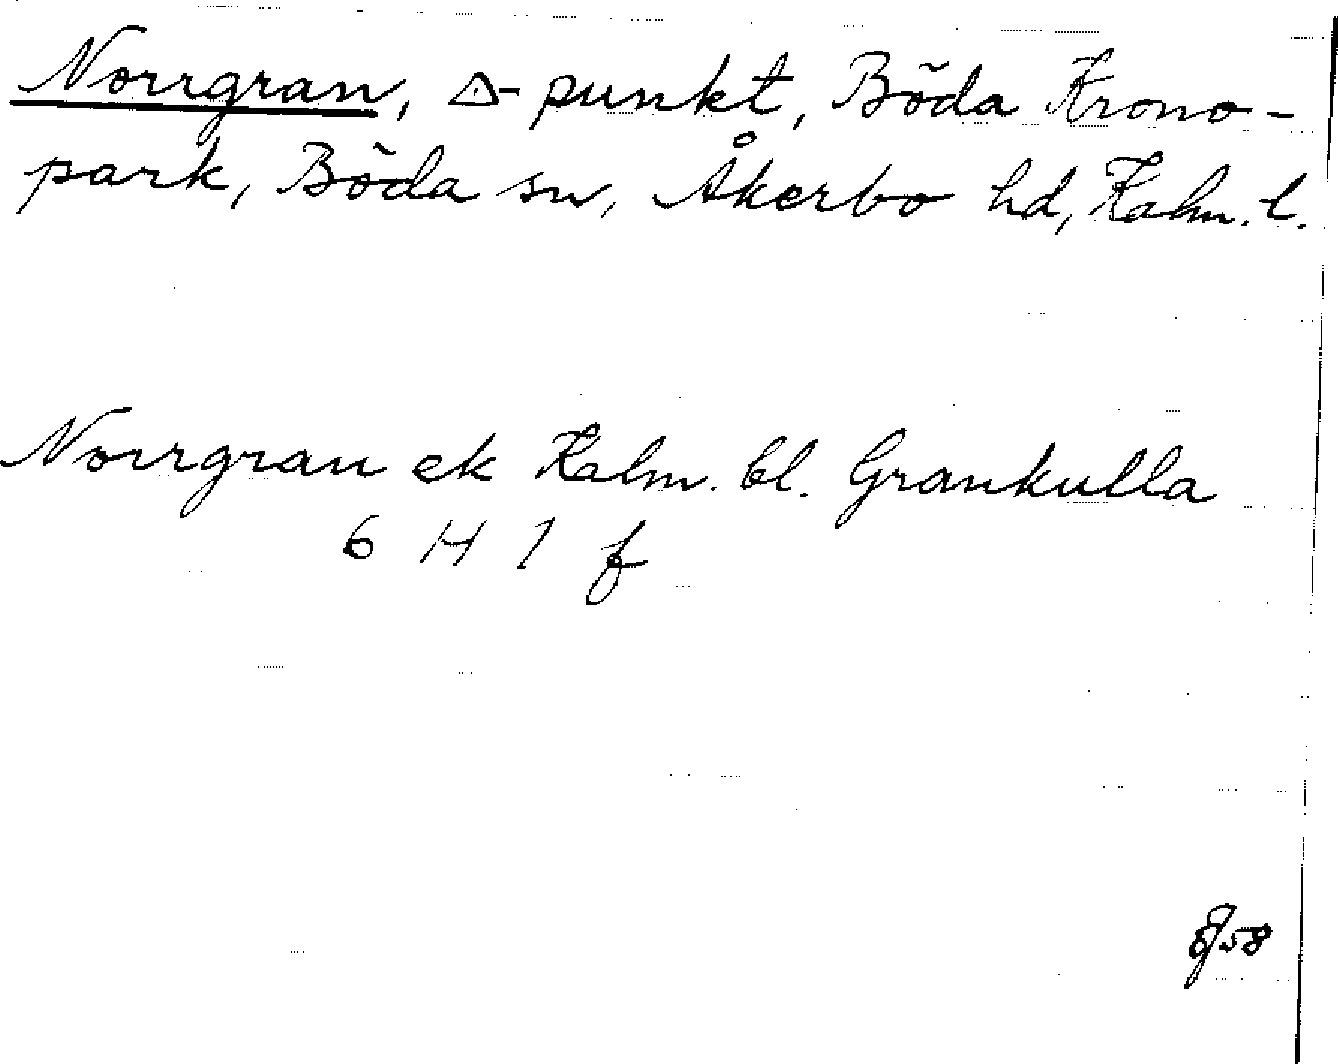 Norrgran, △-punkt, Böda Krono-
park, Böda sn, Åkerbo hd, Kalm. l.
Norrgran ek Kalm. bl. Grankulla
6 H 1 f
58